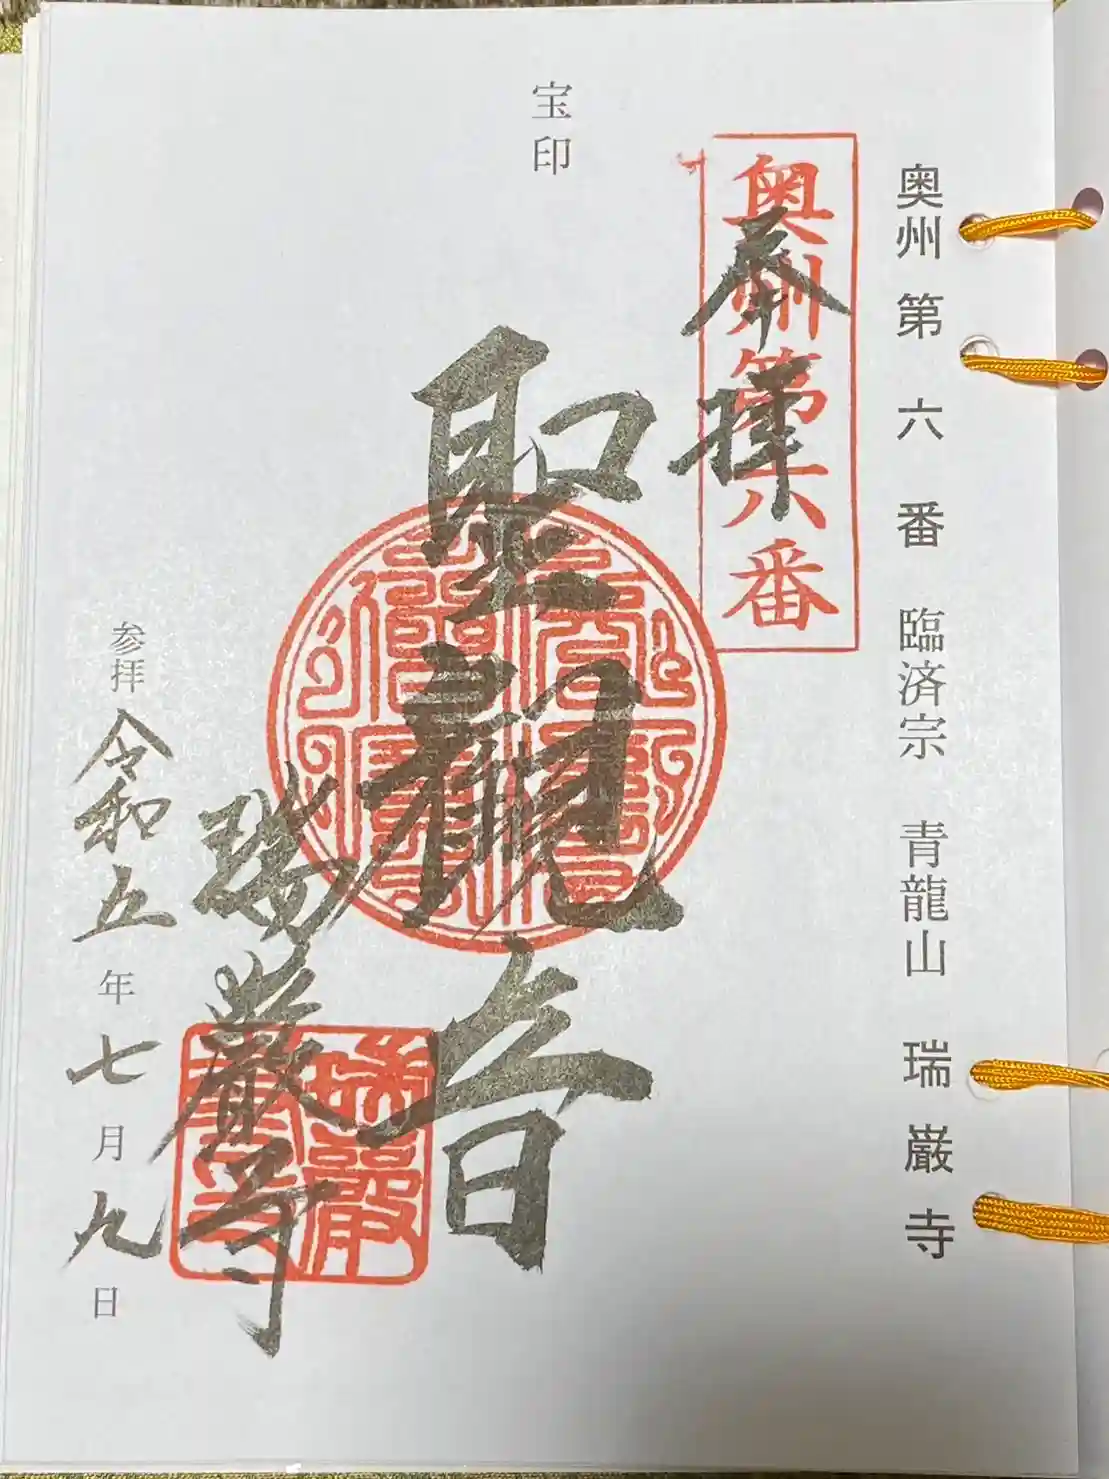 奥州第六番 臨済宗 青龍山 瑞巌寺
奥州第六番
奉拝
宝印
聖観音
瑞巌寺
参拝 令和五年七月九日